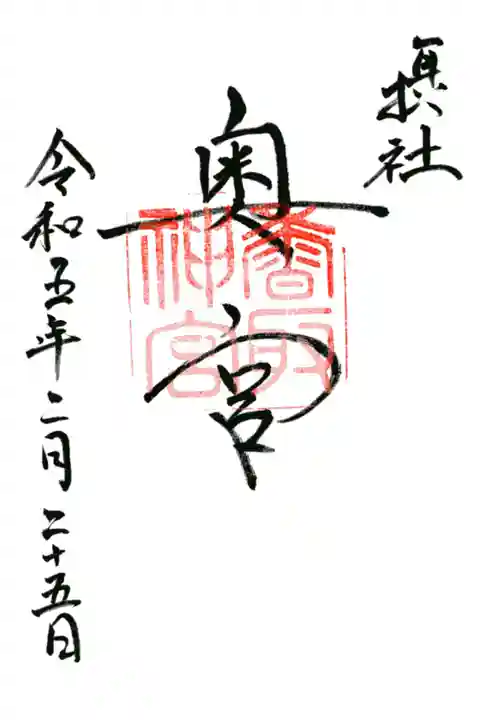 摂社
奥宮
香取
神宮
令和五年二月二十五日